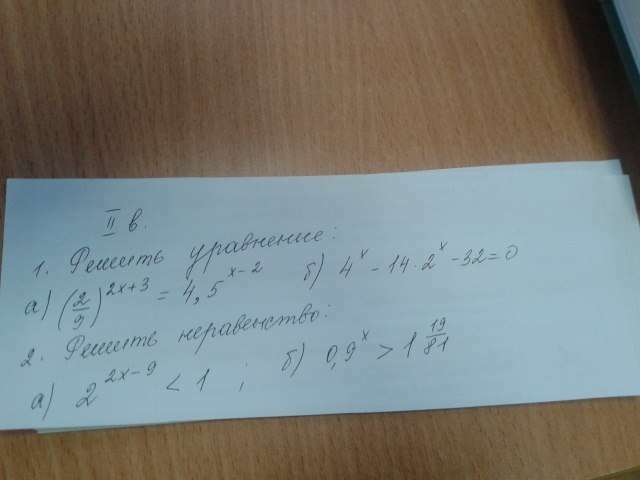 II в.
1. Решить уравнение:
а) (2/9)^(2x+3) = 4,5^(x-2) б) 4^x - 14·2^x - 32 = 0
2. Решить неравенство:
а) 2^(2x-9) < 1 ; б) 0,9^x > 1 19/81